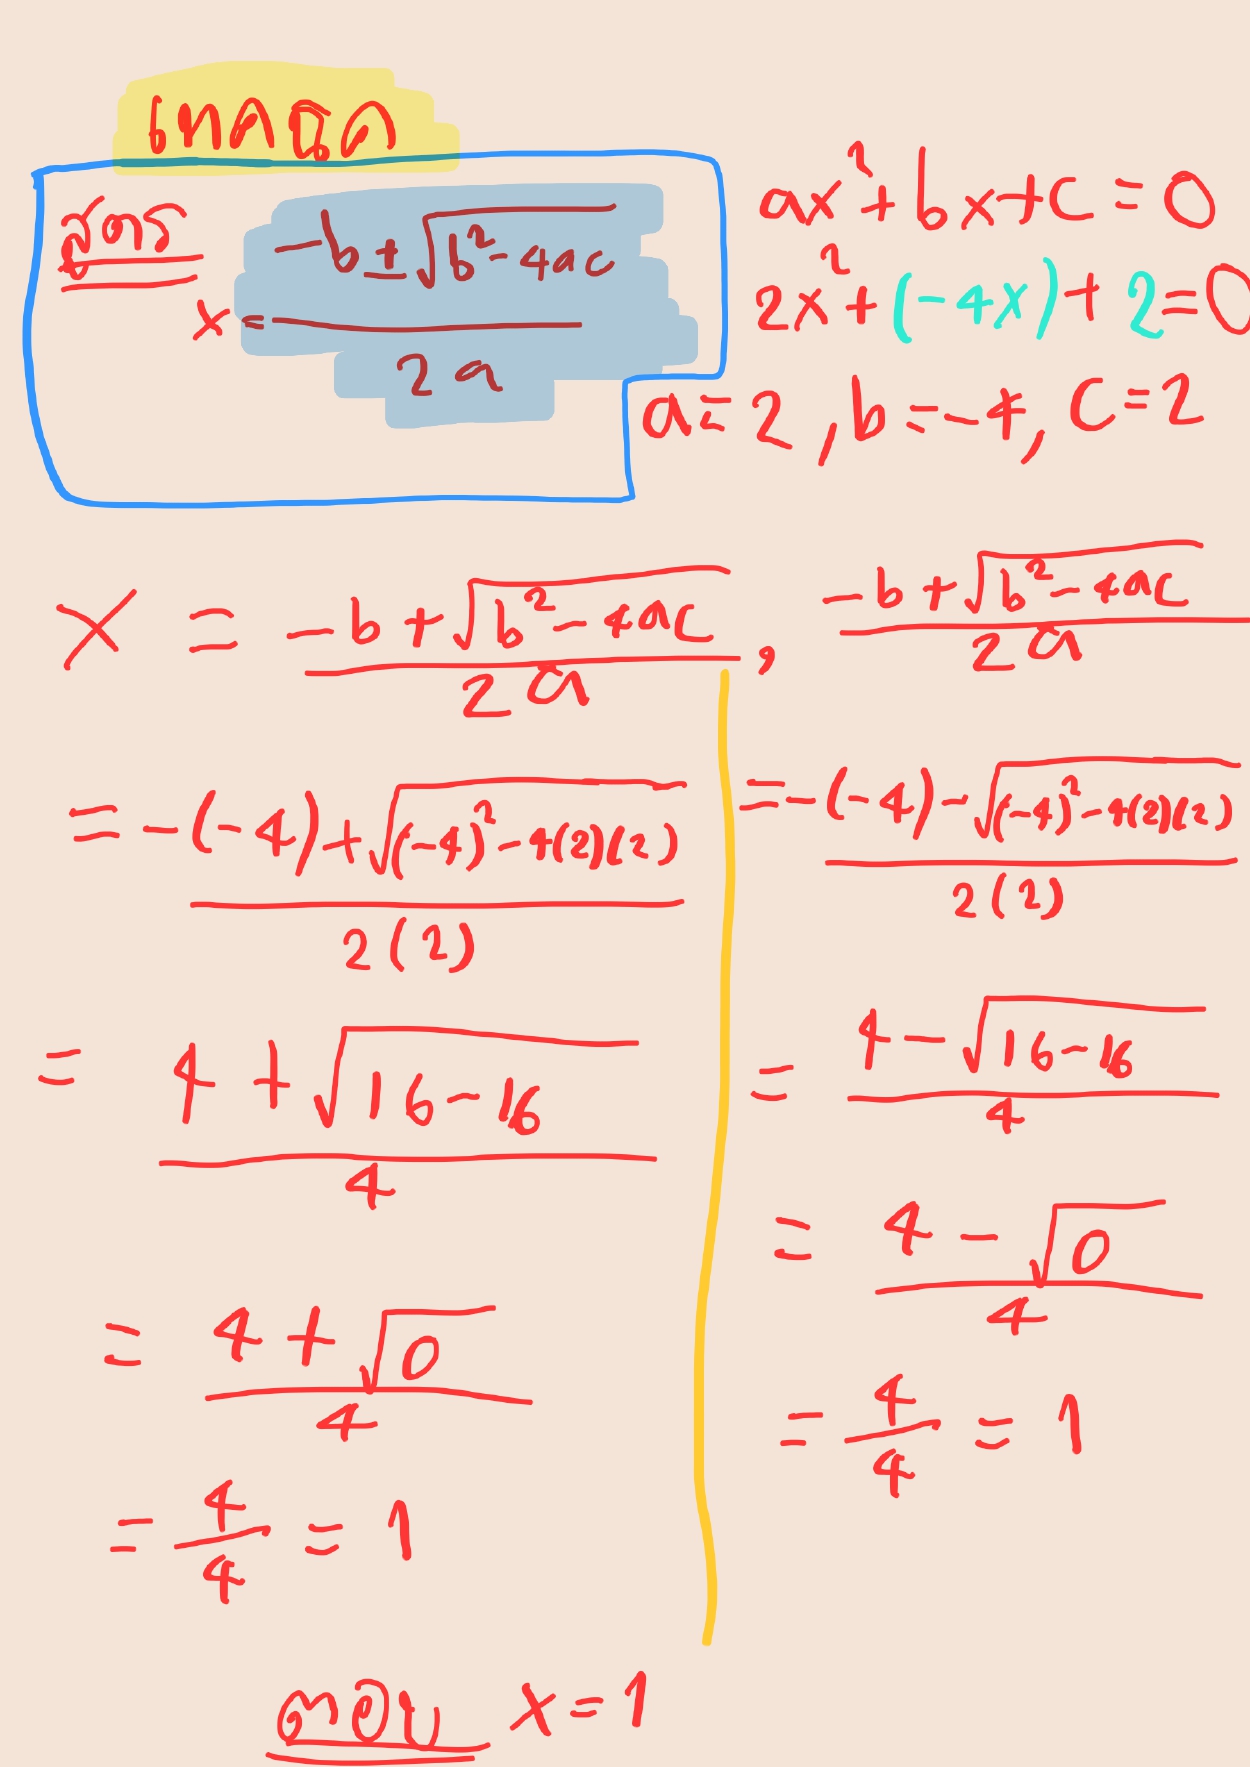 เทคนิค
สูตร x = (-b ± √(b² - 4ac)) / 2a
ax² + bx + c = 0
2x² + (-4x) + 2 = 0
a = 2, b = -4, c = 2
x = (-b + √(b² - 4ac)) / 2a , (-b + √(b² - 4ac)) / 2a
= (-(-4) + √((-4)² - 4(2)(2))) / 2(2)
= (4 + √(16 - 16)) / 4
= (4 + √0) / 4
= 4/4 = 1
= (-(-4) - √((-4)² - 4(2)(2))) / 2(2)
= (4 - √(16 - 16)) / 4
= (4 - √0) / 4
= 4/4 = 1
ตอบ x = 1